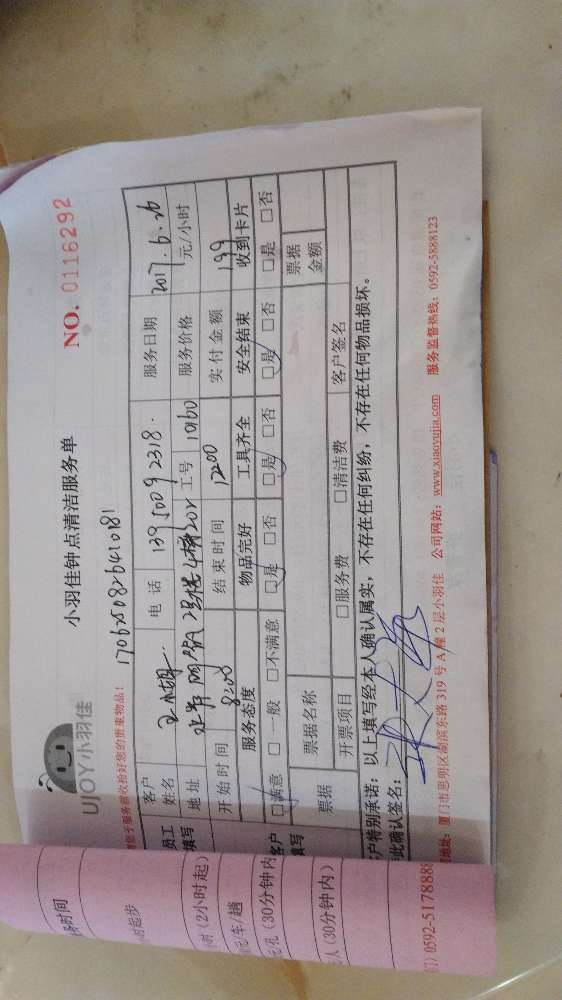 UJOY小羽佳
小羽佳钟点清洁服务单
NO. 0116292
1706250826410181
您于服务前收拾好您的贵重物品！
员工填写
客户姓名
电话 13950092318
服务日期 2017.6.26
地址
工号 10160
服务价格 元/小时
开始时间 8:00
结束时间 12:00
实付金额 199
客户填写
服务态度 物品完好 工具齐全 安全结束 收到卡片
□满意 □一般 □不满意 □是 □否 □是 □否 □是 □否 □是 □否
票据
票据名称
票据金额
开票项目 □服务费 □清洁费 客户签名
客户特别承诺：以上填写经本人确认属实，不存在任何纠纷，不存在任何物品损坏。
此确认签名：
地址：厦门市思明区湖滨东路 319 号 A 幢 2 层小羽佳 公司网站：www.xiaoyujia.com 服务监督热线：0592-5888123
时间
时起步
时（2小时起）
元/车/趟
元孔（30分钟内
人（30分钟内）
门）0592-5178888